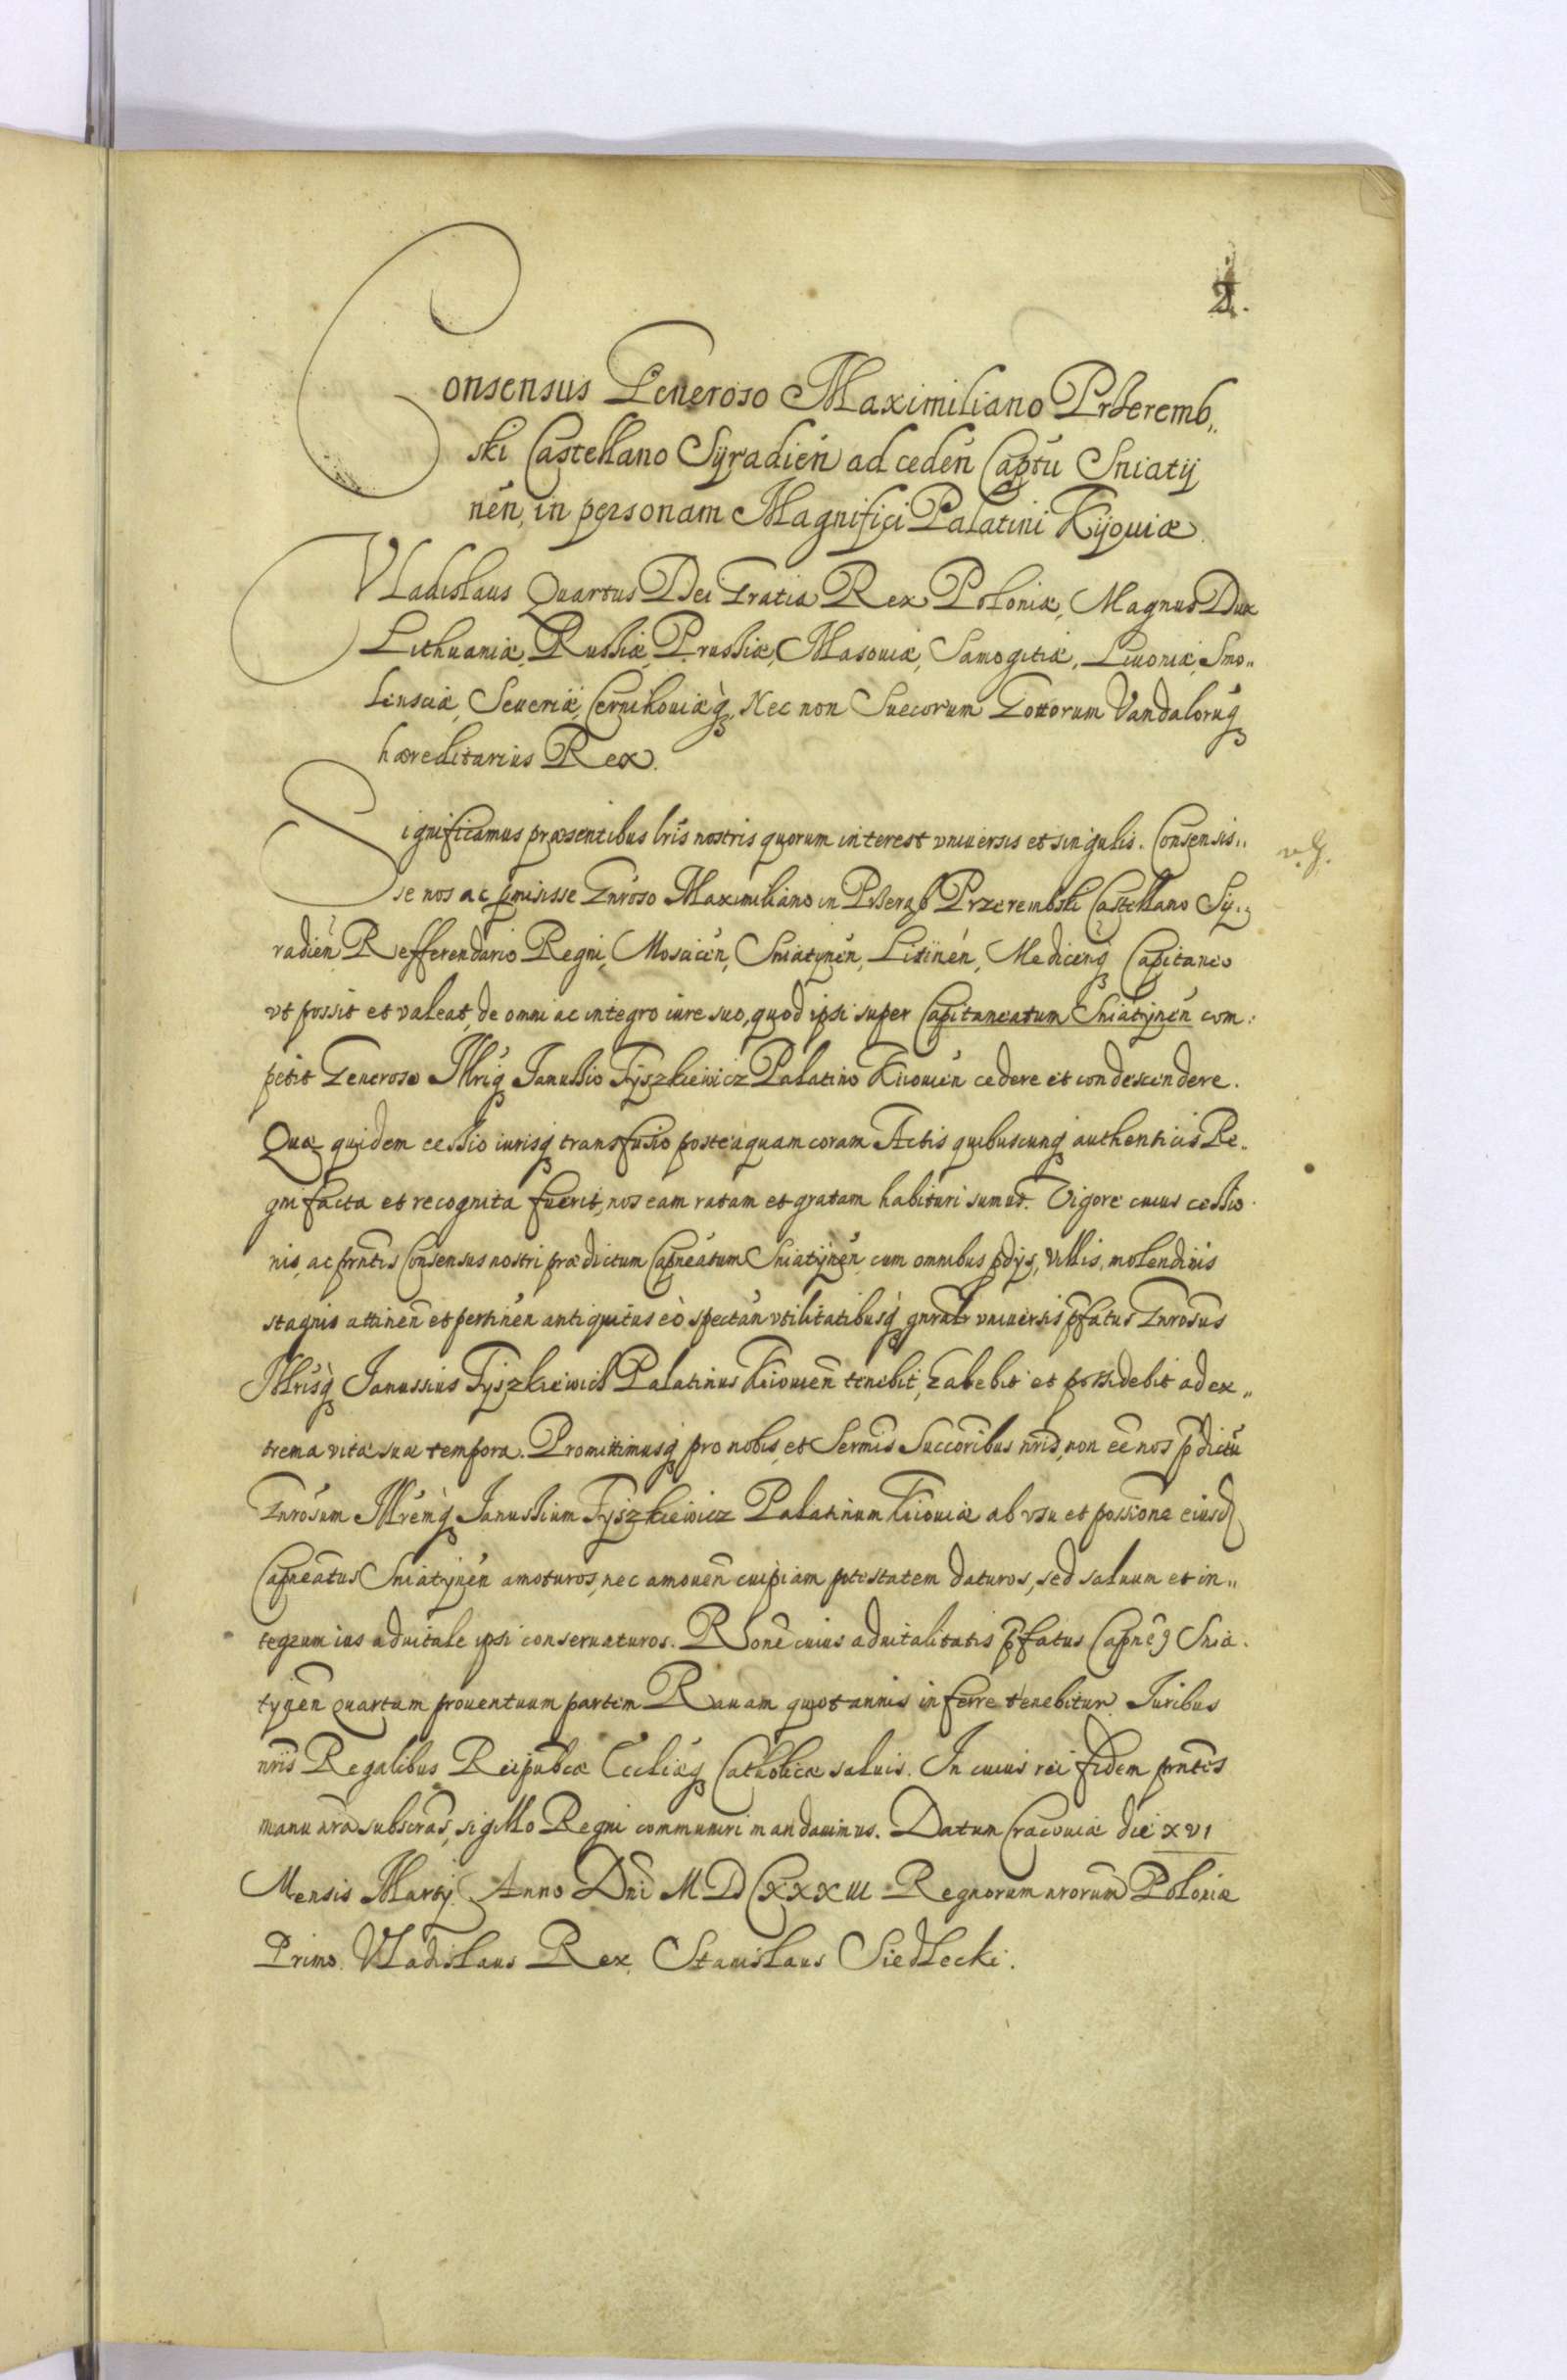 2.
Consensus Generoso Maximiliano Przeremb„
ski Castellano Syradień ad cedeń Captū Sniatÿ
nēn, in personam Magnifici Palatini Kijouiæ.
Vladislaus Quartus Dei Gratia Rex Poloniæ, Magnus Dux
Lithuaniæ, Russiæ, Prussiæ, Masouiæ, Samogitiæ, Liuoniæ, Smo„
lensciæ, Seueriæ, Czernihouiæq, Nec non Suecorum Gottorum Vandalorūq
hæreditarius Rex.
Significamus præsentibus lris nostris quorum interest vniuersis et singulis. Consensis„
se nos ac pmisisse Gnroso Maximiliano in Przerąb Przerembski Castellano Sy„
radień, Refferendario Regni, Moscicēn, Sniatynēn, Litinēn, Medicenq Capitaneo
vt possit et valeat, de omni ac integro iure suo, quod ipsi super Capitaneatum Sniatynēn com:
petit Generoso Mriq Janussio Tyszkiewicz Palatino Kiiouień cedere et condescendere.
Quæ quidem cessio iurisq transfusio posteaquam coram Actis quibuscunq authenticis Re„
gni facta et recognita fuerit, nos eam ratam et gratam habituri sumus. Vigore cuius cessio
nis, ac prntis Consensus nostri prædictum Capneatum Sniatynēn cum omnibus pdys, villis, molendinis
stagnis attinēn et pertinēn antiquitus eò spectān vtilitatibusq gnralr vniuersis pfatus Gnrosus
Mrisq Janussius Tyszkiewicz Palatinus Kiiouień tenebit, habebit et possidebit ad ex„
trema vitæ suæ tempora. Promittimusq pro nobis, et Sermis Succoribus nris, non eē nos pdictū
Gnrosum Mremq Janussium Tyszkiewicz Palatinum Kiiouiæ ab vsu et possione eiusd
Capneatus Sniatynēn amoturos, nec amouēn cuipiam potestatem daturos, sed saluum et in„
tegrum ius aduitale ipsi conseruaturos. Rone cuius aduitalitatis pfatus Capne9 Snia.
tynēn quartam prouentuum partem Rauam quotannis inferre tenebitur. Juribus
nris Regalibus Reipubcæ Eccliæq Catholicæ saluis. In cuius rei fidem prntes
manu nra subscras, sigillo Regni communiri mandauimus. Datum Cracouiæ die XVI
Mensis Marty. Anno Dni MDCXXXIII Regnorum nrorum Poloniæ
Primo. Vladislaus Rex. Stanislaus Siedlecki.